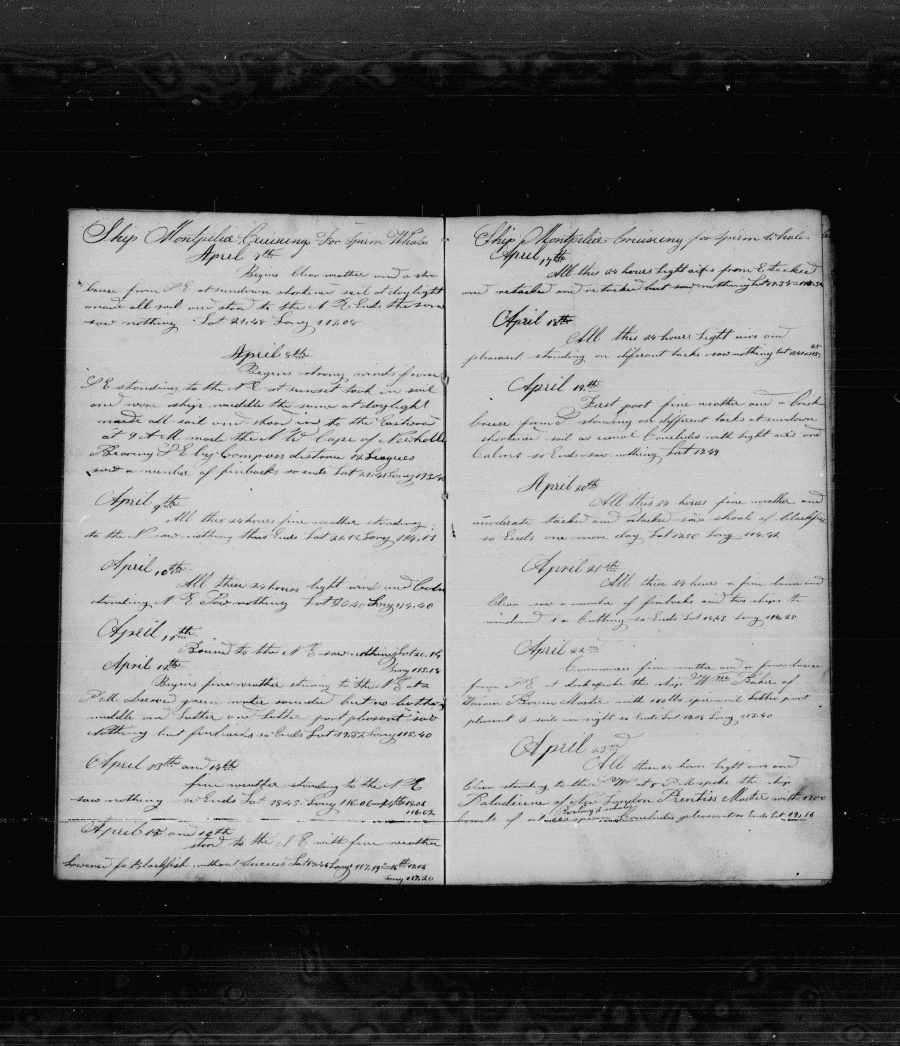 Ship Montpelia Cruising For Sperm Whale
April 7th
Begins Clear weather and a
breeze from S E at sundown shortened sail at daylight
made all sail and stood to the N E Ends the same
saw nothing Lat 21.48 Long 113.08
April 8th
Begins strong winds from
S E standing to the N E at sunset took in sail
and wore ship middle the same at daylight
made all sail and stood in to the Eastward
at 9 A M made the N W Cape of
Bearing S E by Compass distance 12 Leagues
saw a number of finbacks so ends Lat 21.41 Long
April 9th
All this 24 hours fine weather standing
to the N saw nothing thus Ends Lat Long 114.11
April 10th
All these 24 hours light wind and
standing N E saw nothing Lat 20.40 Long 114.40
April 11th
Bound to the N E saw nothing Lat 20.14
Long 115.14
April 12th
Begins fine weather steering to the N E at 2
P.M. observed green water sounded but no bottom
middle and latter part pleasant saw
nothing but finbacks so Ends Lat 19.52 Long 115.40
April 13th and 14th
fine weather standing to the N E
saw nothing so Ends Lat 18.45 Long 116.06 14th 18.08
116.02
April 15 and 16th
stood to the N E with fine weather
lowered for Blackfish without success Lat Long 117.19 16th
Long 117.20
Ship Montpelia Cruising for Sperm Whale
April 17th
All this 24 hours light airs from E tacked
and retacked and retacked but saw nothing
April 18th
All this 24 hours light airs and
pleasant standing on different tacks saw nothing Lat
April 19th
First part fine weather and a brisk
breeze from S standing on different tacks at sundown
shortened sail as usual Concludes with light airs and
Calms so Ends saw nothing Lat 13.49
April 20th
All this 24 hours fine weather and
moderate tacked and retacked saw shoal of blackfish
so Ends one more day Lat Long 114.42
April 21st
All this 24 hours a fine breeze and
Clear saw a number of finbacks and two ships to
windward so Ends Lat Long 114.25
April 22nd
Commences fine weather and a fine breeze
from S E at spoke the ship Wm Baker of
Warren Master with sperm
pleasant 2 sails in sight so Ends Lat Long 113.40
April 23rd
All this 24 hours light airs and
Clear standing to the at 5 P.M. spoke the ship
of New London Prentiss Master with 1700
barrels of oil sperm Concludes pleasant so Ends Lat 19.16